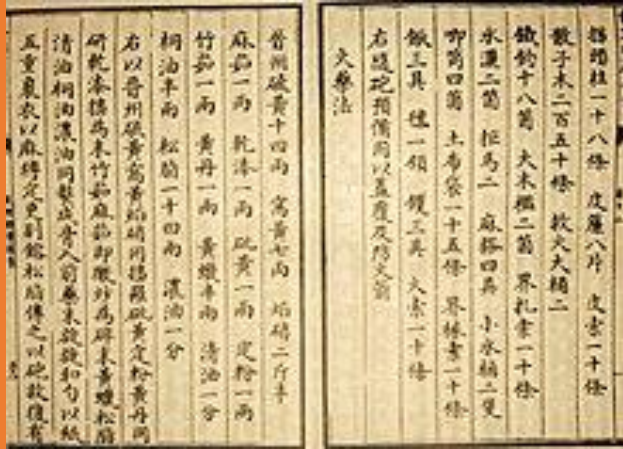 頭柱一十八條 皮簾八片 皮索一十條
散子木二百五十條 救火大桶二
鐵鈎十八箇 大木櫃二箇 界扎索一十條
水濃二箇 拒馬二 麻搭四具 小水桶二隻
唧筒四箇 土布袋一十五條 界椽索一十條
鍬三具 氊一領 钁三具 火索一十條
右隨砲預備用以蓋覆及防火箭
火藥法
晉州硫黃十四兩 窩黃七兩 焰硝二斤半
麻茹一兩 乾漆一兩 砒黃一兩 定粉一兩
竹茹一兩 黃丹一兩 黃蠟半兩 清油一分
桐油半兩 松脂一十四兩 濃油一分
右以晉州硫黃窩黃焰硝同搗羅砒黃定粉黃丹同
研乾漆搗為末竹茹麻茹即微炒為碎末黃蠟松脂
清油桐油濃油同熬成膏入前藥末旋旋和勻以紙
五重裹衣以麻縛定更別鎔松脂傅之以砲放復有